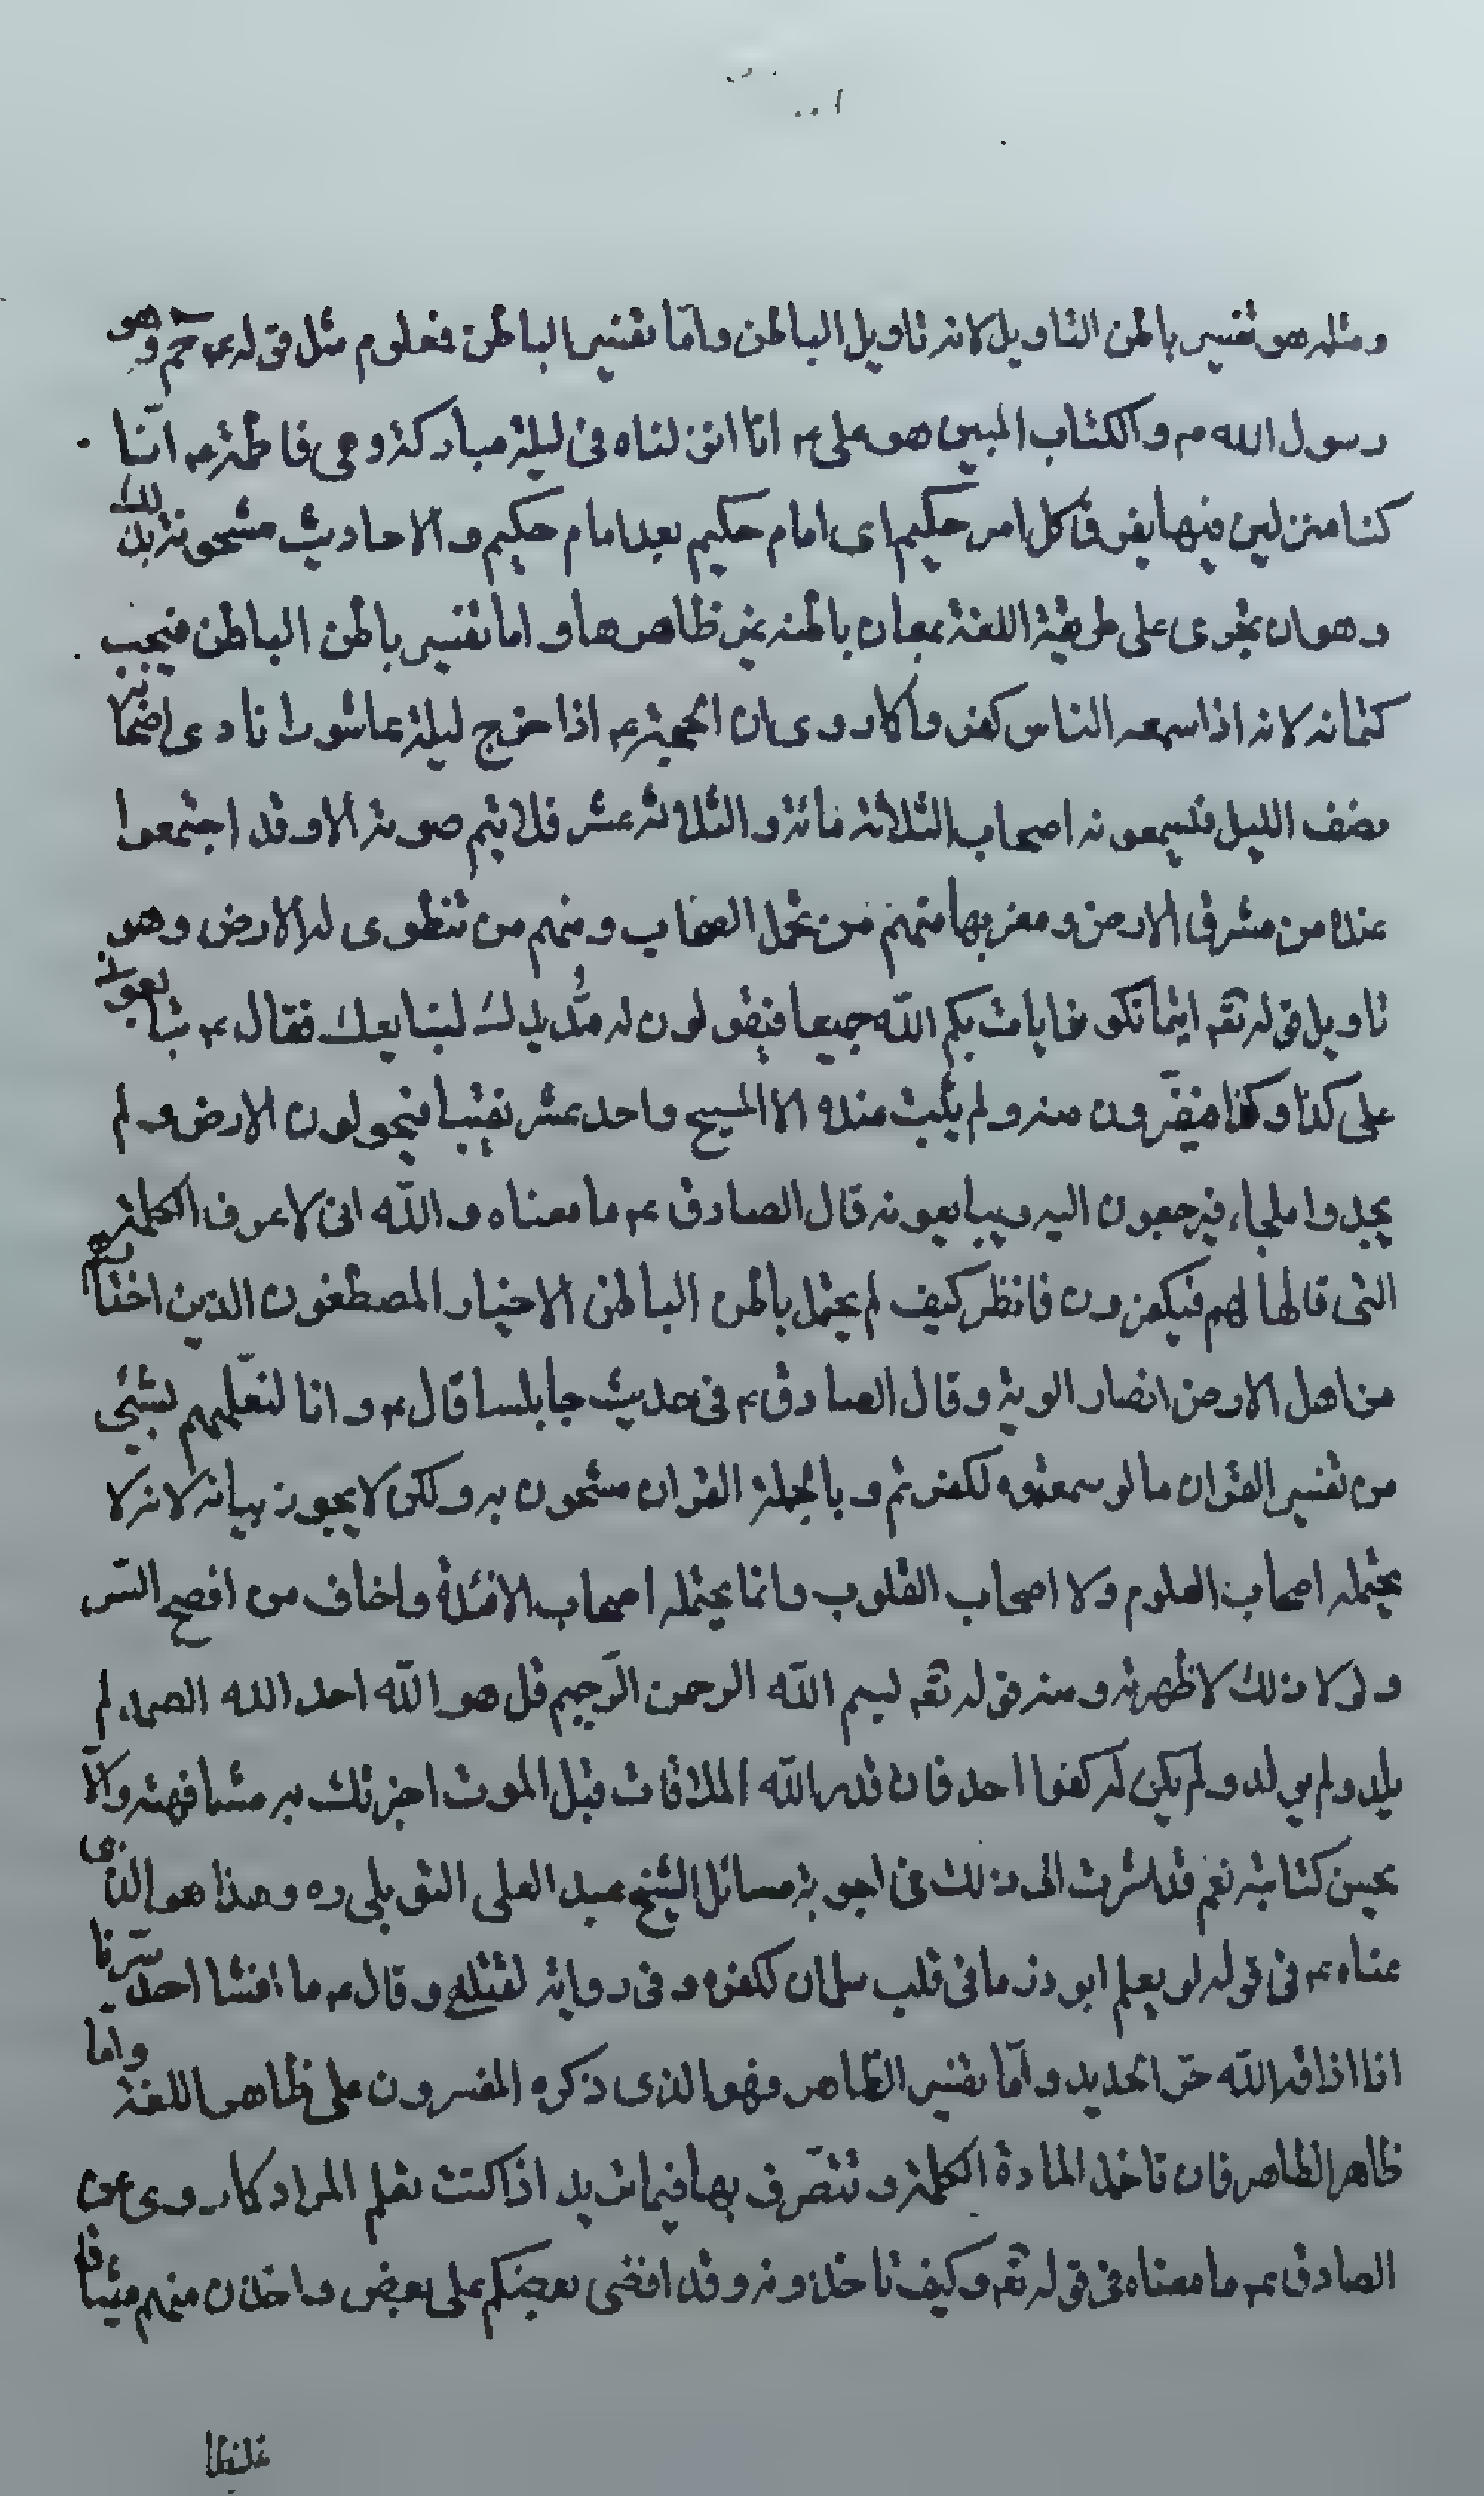 ومثله هو تفسير باطن التاويل لانه تاويل الباطن واما تفسير الباطن فمعلوم مثل قوله ع حم وهو
رسول الله ص والكتاب المبين هو على ع انا انزلناه فى ليلة مباركة وهى فاطمة ع انّا
كنا منزلين فيها يفرق كل امر حكيم اى امام حكيم بعد امام حكيم والاحاديث مشحونة بذلك
وهو ان يجرى على طريقة اللغة بمعان باطنه غير ظاهرها واما تفسير باطن الباطن فيجب
كتمانه لانه اذا سمعه الناس كفروا كما روى ان الحجة ع اذا خرج ليلة عاشورا نادى اصحابه
نصف الليل فتسمعونه اصحاب الثلاثه مائة والثلاثة عشر فلا يتم صوته الا وقد اجتمعوا
عنده من مشرق الارض ومغربها منهم من تحمل السحاب ومنهم من تنطوى له الارض وهو
تاويل قوله تقه اينما تكونوا يات بكم الله جميعا فيقولون له مُدّ يدك لنبايعك فقال ع تبايعونى
على كذا وكذا فيفرّون منه ولم يثبت منده الا المسيح واحد عشر نقيبا فيجولون الارض ولم
يجدوا ملجاء فيرجعون اليه ويبايعونه قال الصادق ع ما معناه والله انى لاعرف الكلمة
التى قالها لهم فيكفرون فانظر كيف لم يحتمل باطن الباطن الاخيار المصطفون الذين اختارهم
من اهل الارض انصار الوية وقال الصادق ع فى حديث جابلسا قال ع وانا لنعلّمهم لشئى
من تفسير القران ما لو سمعتموه لكفرتم وبالجملة القران مشحون به ولكن لا يجوز بيانه لانه لا
يحتمله اصحاب العلوم ولا اصحاب القلوب وانما يحتمله اصحاب الافئدة واخاف من افصح السّر
ولولا ذلك لاظهرته ومنه قوله تقه بسم الله الرحمن الرّحيم قل هو الله احد الله الصمد لم
يلد ولم يولد ولم يكن له كفوا احد فان قدر الله الملاقات قبل الموت اخبرتك به مشافهة والّا
يحسن كتابته نعم قد اشرت الى ذلك فى اجوبة مسائل الشيخ عبد العلى التوبلى ره وهذا هو الذى
عناه ع فى قوله لو يعلم ابوذر ما فى قلب سلمان لكفره وفى رواية لقتله وقال ع ما افشا احد سّرنا
انا اذاقه الله حّر الحديد وامّا تفسير الظّاهر وفهو الذى ذكره المفسرون على ظاهر اللغة وامّا
ظاهر الظاهر فان تاخذ المادة الكلمة وتتصّرف بها فيما تريد اذا كنت تعلم المراد كما روى عن
الصادق ع ما معناه فى قوله تقه وكيف تاخذونه وقد افضى بعضكم على بعض واخذن منهم ميثاقا
غليظا